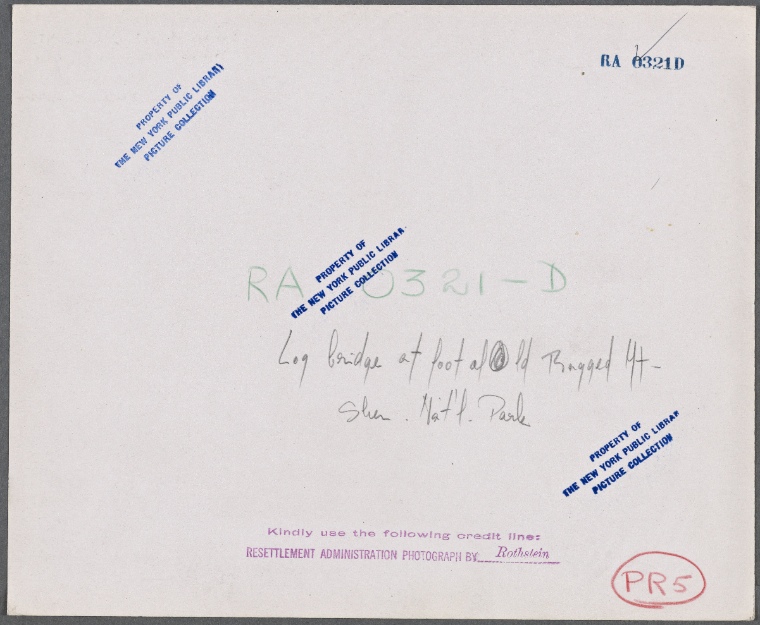 RA 0321D
PROPERTY OF
THE NEW YORK PUBLIC LIBRARY
PICTURE COLLECTION
PROPERTY OF
THE NEW YORK PUBLIC LIBRAR
PICTURE COLLECTION
RA 0321-D
Log bridge at foot of Old Ragged Mt-
Shen. Nat'l. Park
PROPERTY OF
THE NEW YORK PUBLIC LIBRAR
PICTURE COLLECTION
Kindly use the following credit line:
RESETTLEMENT ADMINISTRATION PHOTOGRAPH BY Rothstein
PR5